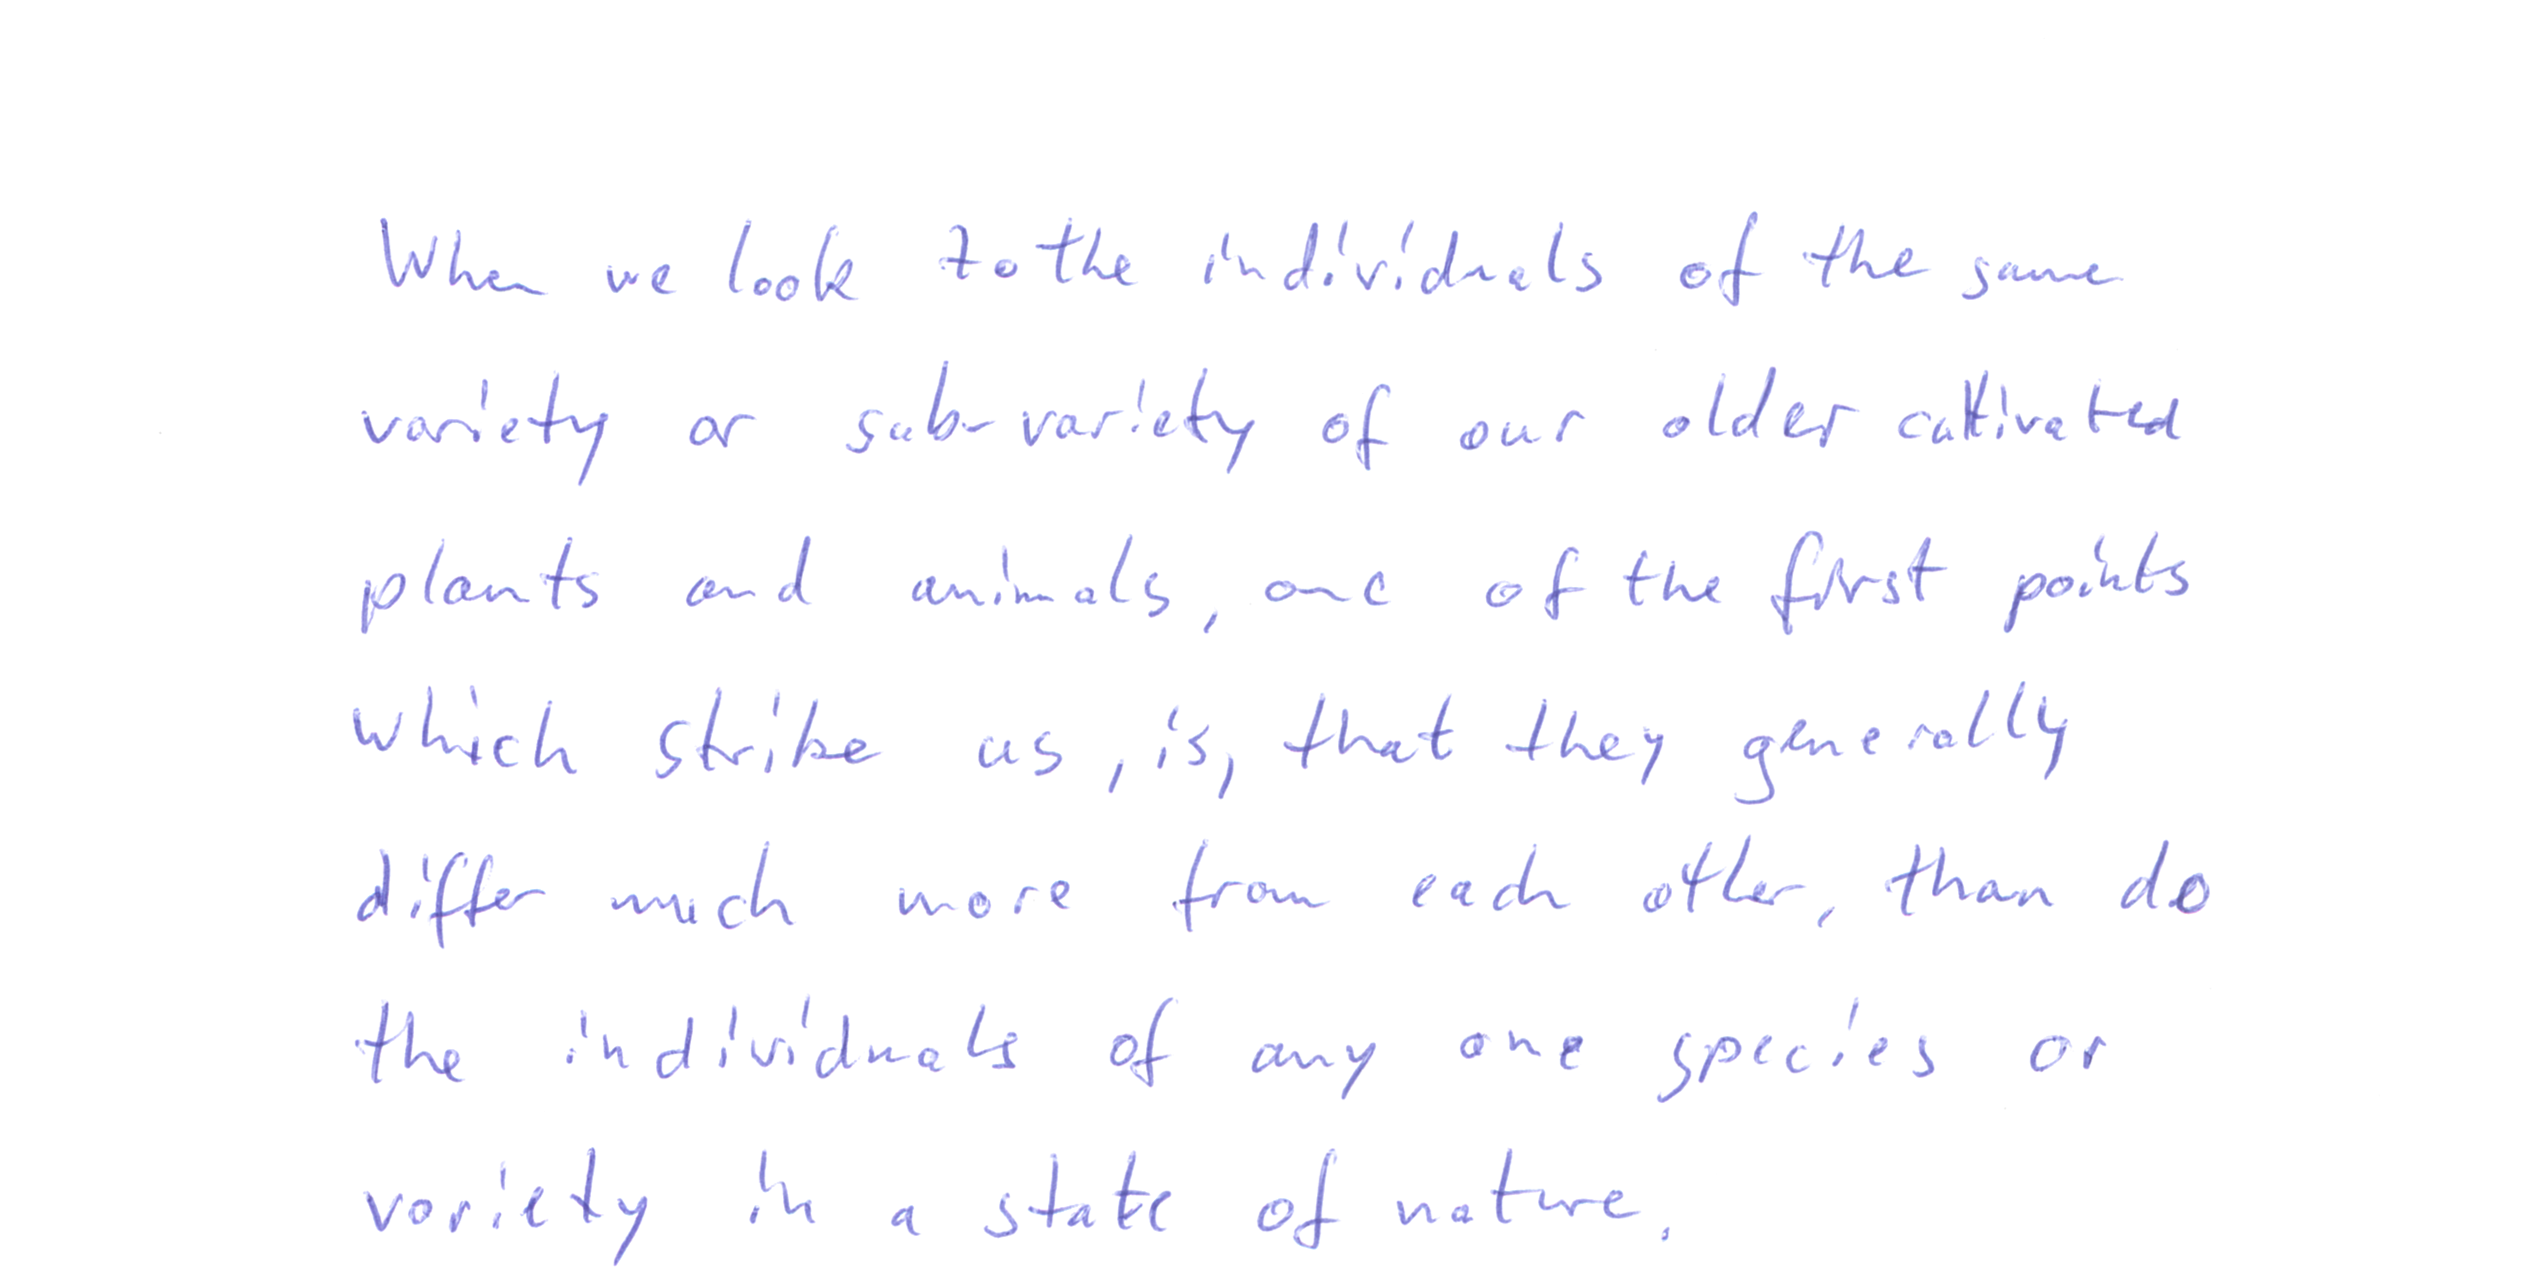 When we look to the individuals of the same
variety or sub-variety of our older cultivated
plants and animals, one of the first points
which strike us, is, that they generally
differ much more from each other, than do
the individuals of any one species or
variety in a state of nature.